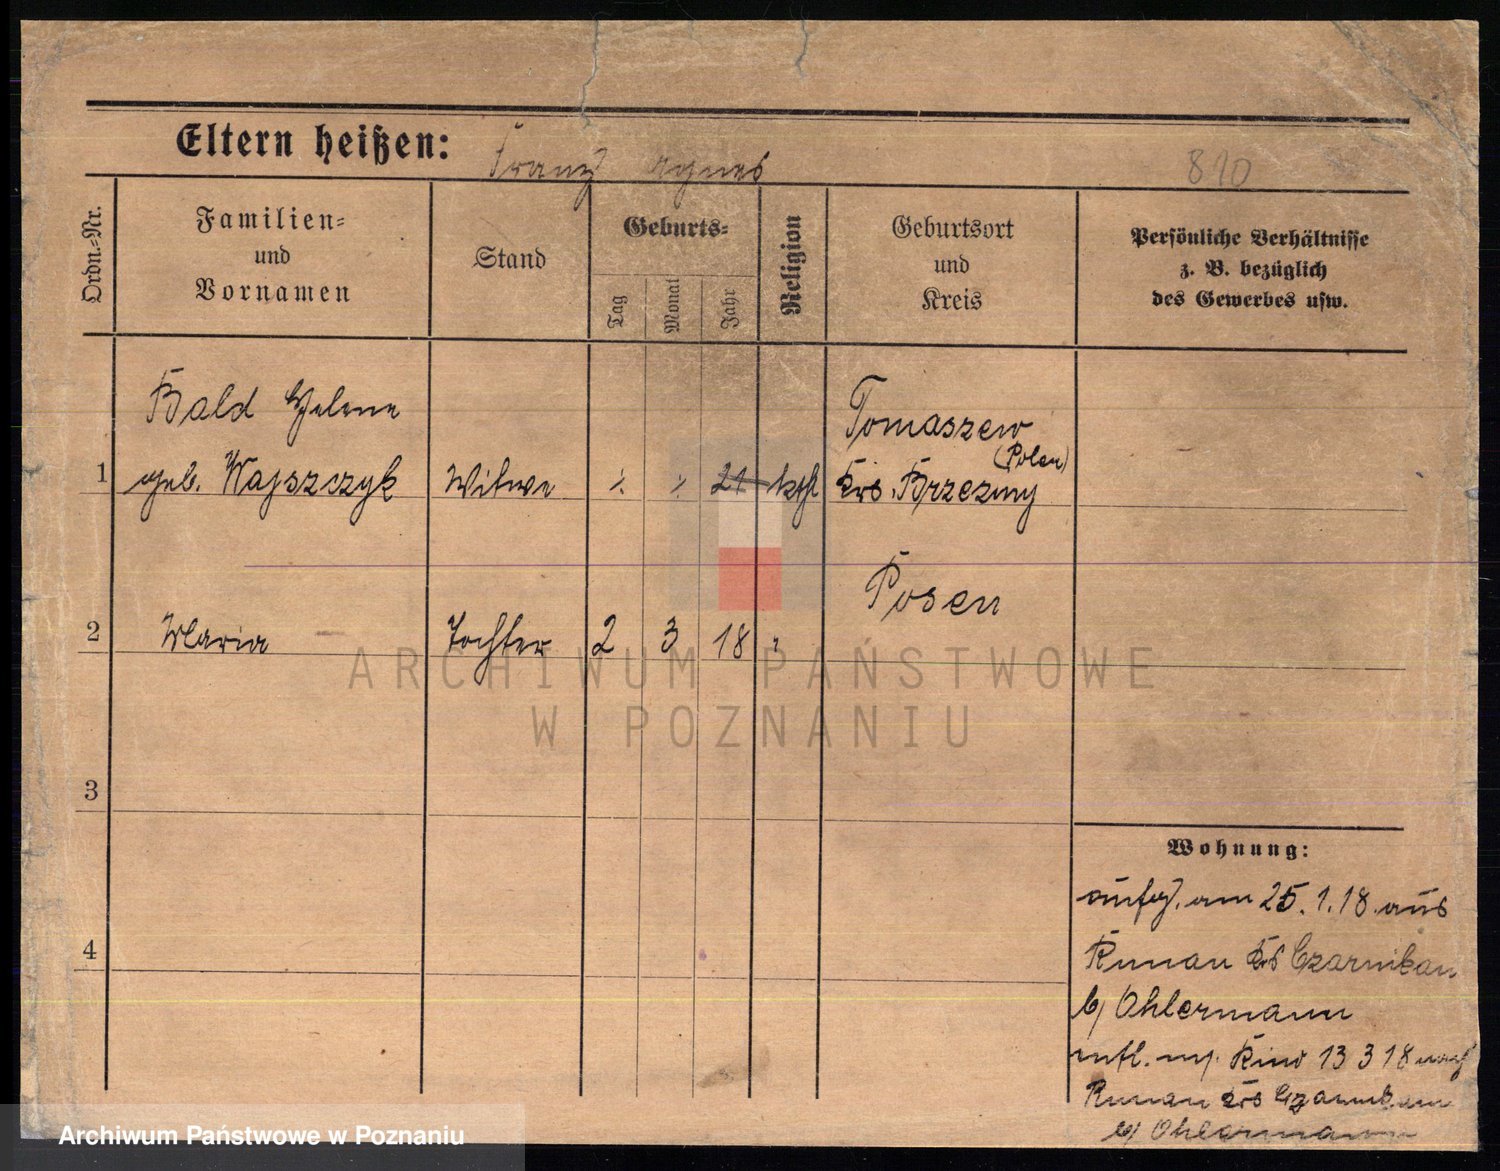 Eltern heißen: Franz Agnes
810
Ordn.=Nr.
Familien=
und
Vornamen
Stand
Geburts=
Tag
Monat
Jahr
Religion
Geburtsort
und
Kreis
Persönliche Verhältnisse
z. B. bezüglich
des Gewerbes usw.
Bald Helene
Tomaszew
(Polen)
1 geb. Wajszczyk Witwe 21 kth Krs. Brzeziny
Posen
2 Maria Tochter 2 3 18
ARCHIWUM PAŃSTWOWE
W POZNANIU
3
Wohnung:
aufg. am 25.1.18. aus
4
Runau Krs Czarnikau
b/ Ohlermann
entl. m/ Kind 13 3 18 nach
Runau Krs Czarnikau
b/ Ohlermann
Archiwum Państwowe w Poznaniu